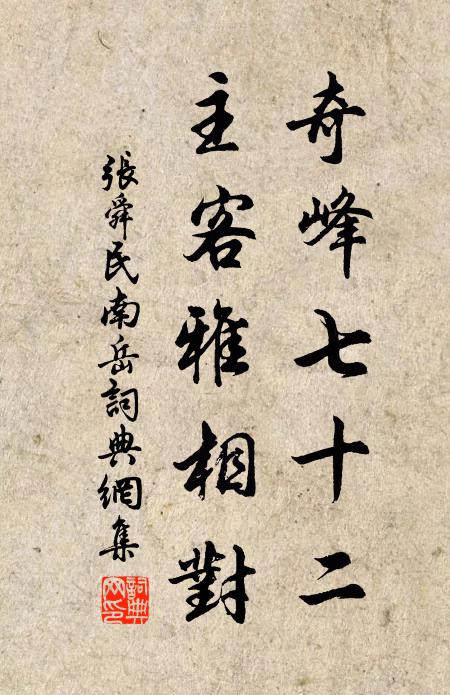 奇峰七十二
主客雅相對
張舜民南岳詞典網集
詞典網印